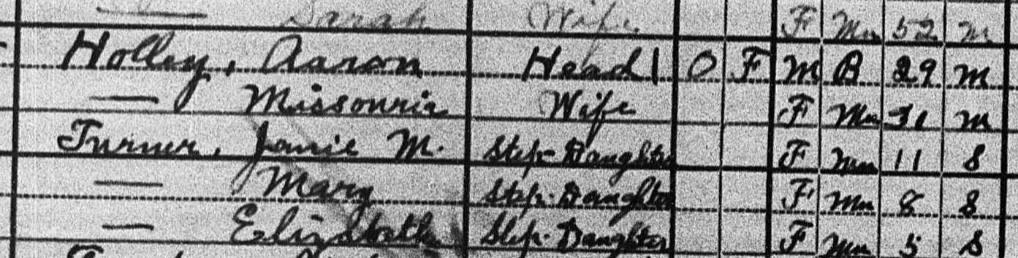 — Sarah Wife F Mu 52 M
Holley, Aaron Head 1 O F M B 29 M
— Missouria Wife F Mu 31 M
Turner, Janie M. Step-Daughter F Mu 11 S
— Mary Step-Daughter F Mu 8 S
— Elizabeth Step-Daughter F Mu 5 S